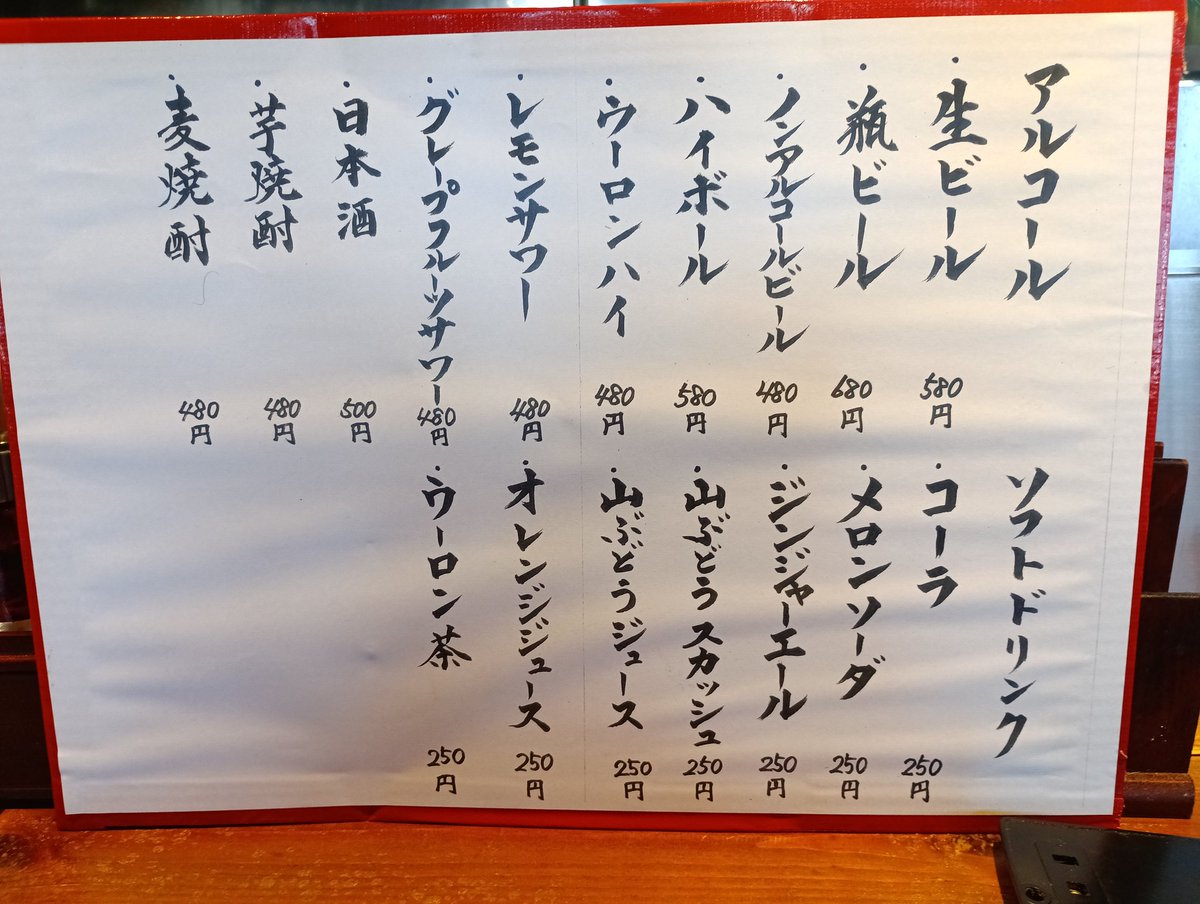 アルコール
・生ビール 580円
・瓶ビール 680円
・ノンアルコールビール 480円
・ハイボール 580円
・ウーロンハイ 480円
・レモンサワー 480円
・グレープフルーツサワー 480円
・日本酒 500円
・芋焼酎 480円
・麦焼酎 480円
ソフトドリンク
・コーラ 250円
・メロンソーダ 250円
・ジンジャーエール 250円
・山ぶどうスカッシュ 250円
・山ぶどうジュース 250円
・オレンジジュース 250円
・ウーロン茶 250円